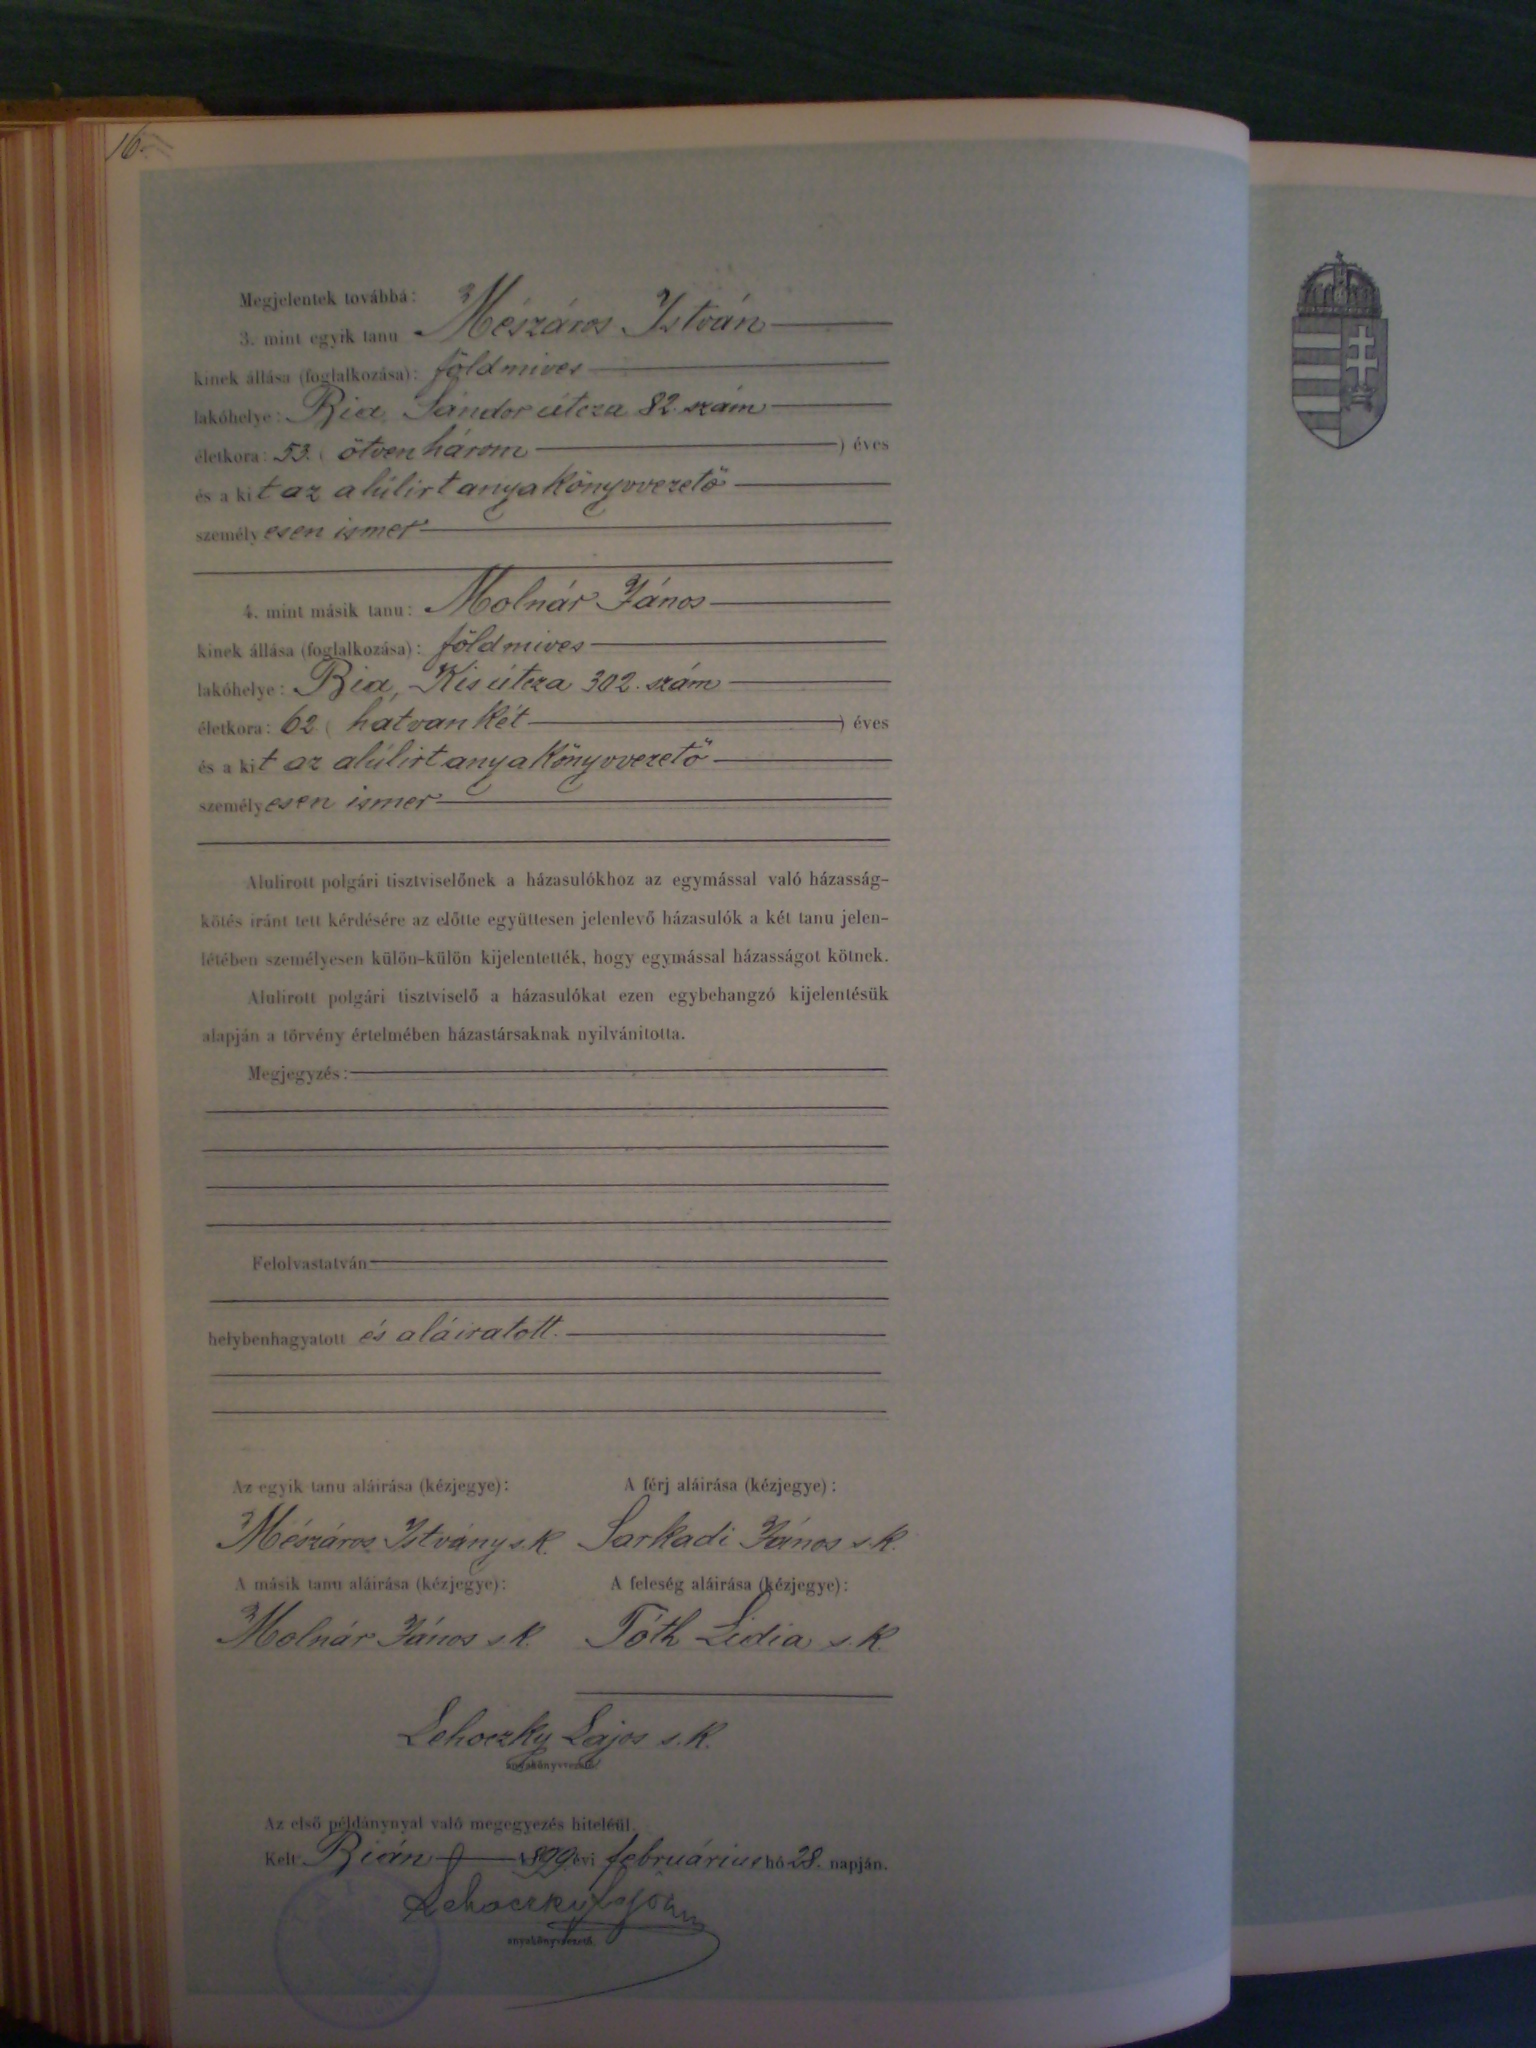 16.
Megjelentek továbbá:
3. mint egyik tanu Mészáros István
kinek állása (foglalkozása): földmives
lakóhelye: Bia, Sándor útcza 82. szám
életkora: 53. (ötvenhárom) éves
és a kit az alúlirt anyakönyvvezető
személyesen ismer
4. mint másik tanu: Molnár János
kinek állása (foglalkozása): földmives
lakóhelye: Bia, Kis útcza 302. szám
életkora: 62 (hatvankét) éves
és a kit az alúlirt anyakönyvvezető
személyesen ismer
Alulirott polgári tisztviselőnek a házasulókhoz az egymással való házasság-
kötés iránt tett kérdésére az előtte együttesen jelenlevő házasulók a két tanu jelen-
létében személyesen külön-külön kijelentették, hogy egymással házasságot kötnek.
Alulirott polgári tisztviselő a házasulókat ezen egybehangzó kijelentésük
alapján a törvény értelmében házastársaknak nyilvánitotta.
Megjegyzés:
Felolvastatván
helybenhagyatott és aláiratott.
Az egyik tanu aláirása (kézjegye): A férj aláirása (kézjegye):
Mészáros István s.k. Sarkadi János s.k.
A másik tanu aláirása (kézjegye): A feleség aláirása (kézjegye):
Molnár János s.k. Tóth Lidia s.k.
Lehoczky Lajos s.k.
anyakönyvvezető.
Az első példánynyal való megegyezés hiteléül.
Kelt Bián 1899 évi februárius hó 28. napján.
Lehoczky Lajos
anyakönyvvezető.